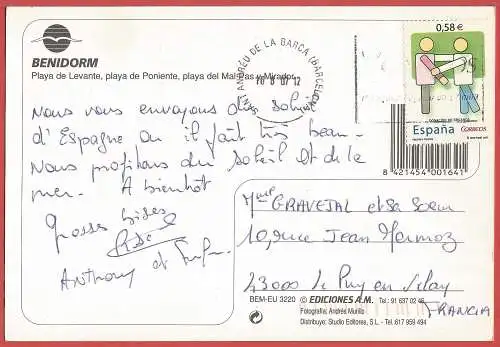 BENIDORM
Playa de Levante, playa de Poniente, playa del Mal Pas y Mirador
SANT ANDREU DE LA BARCA (BARCELONA)
10 8 07 12
0,58 €
España
CORREOS
8 421454 001641
Nous vous envoyons du soleil
d'Espagne ou il fait très beau.
Nous profitons du soleil et de la
mer. A bientôt
Grosses bises
Anthony et
Mme GRAVEJAL et sa soeur
10, rue Jean Mermoz
43000 Le Puy en Velay
FRANCIA
BEM-EU 3220 © EDICIONES A.M. Tel.: 91 637 02 46
Fotografía: Andrés Murillo
Distribuye: Studio Editores, S.L. - Tel. 617 959 494